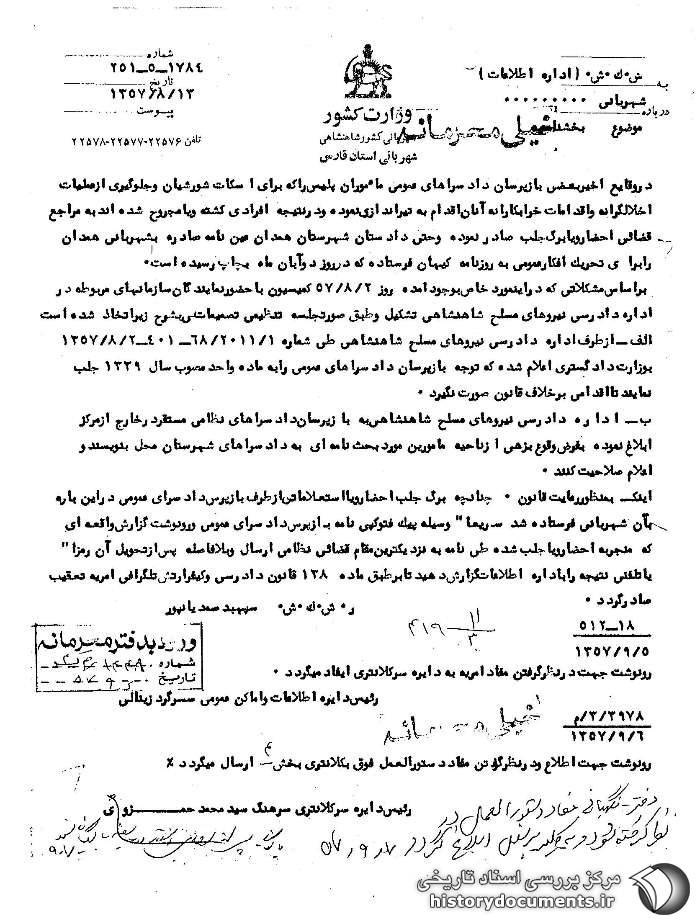 شماره
۲۵۱-۵-۱۷۸۴
تاریخ
۱۳۵۷/۸/۱۳
پیوست
تلفن ۲۲۵۷۶-۲۲۵۷۷-۲۲۵۷۸
وزارت کشور
شهربانی کشور شاهنشاهی
شهربانی استان فارس
ش.ك.ش. (اداره اطلاعات)
به
شهربانی ..........
درباره
موضوع بخشنامه
خیلی محرمانه
در وقایع اخیر بعضی بازپرسان دادسراهای عمومی ماموران پلیس راکه برای اسکات شورشیان وجلوگیری ازعملیات
اخلالگرانه واقدامات خرابکارانه آنان اقدام به تیراندازی نموده ودرنتیجه افرادی کشته ویا مجروح شده اند به مراجع
قضائی احضارویابرگ جلب صادر نموده وحتی دادستان شهرستان همدان عین نامه صادره بشهربانی همدان
رابرای تحریك افکارعمومی به روزنامه کیهان فرستاده که درروز دوآبان ماه بچاپ رسیده است.
براساس مشکلاتی که دراینمورد خاص بوجود آمده روز ۵۷/۸/۲ کمیسیون باحضورنمایندگان سازمانهای مربوطه در
اداره دادرسی نیروهای مسلح شاهنشاهی تشکیل وطبق صورتجلسه تنظیمی تصمیماتی بشرح زیراتخاذ شده است
الف ـ ازطرف اداره دادرسی نیروهای مسلح شاهنشاهی طی شماره ۶۸/۲۰۱۱/۱-۴۰۱-۱۳۵۷/۸/۲
بوزارت دادگستری اعلام شده که توجه بازپرسان دادسراهای عمومی رابه ماده واحده مصوب سال ۱۳۳۹ جلب
نمایند تااقدامی برخلاف قانون صورت نگیرد.
ب ـ اداره دادرسی نیروهای مسلح شاهنشاهی به بازپرسان دادسراهای نظامی مستقر در خارج ازمرکز
ابلاغ نموده بفرض وقوع بزهی ازناحیه مامورین مورد بحث نامه ای به دادسراهای شهرستان محل بنویسند و
اعلام صلاحیت کنند.
اینك بمنظوررعایت قانون. چنانچه برگ جلب احضارویااستعلاماتی ازطرف بازپرس دادسرای عمومی دراین باره
بآن شهربانی فرستاده شد سریعا" وسیله پیك فتوکپی نامه بازپرس دادسرای عمومی ورونوشت گزارش واقعه ای
که منجربه احضارویاجلب شده طی نامه به نزدیکترین مقام قضائی نظامی ارسال وبلافاصله پس ازتحویل آن رمزا"
یاتلفنی نتیجه راباداره اطلاعات گزارش دهید تابرطبق ماده ۱۳۸ قانون دادرسی وکیفرارتش تلگرافی امریه تعقیب
صادرگردد.
ر ش.ك.ش. سپهبد صمدیانپور
۵۱۲-۱۸
۱۳۵۷/۹/۵
ورود بدفتر محرمانه
شماره
تاریخ
رونوشت جهت درنظرگرفتن مفاد امریه به دایره سرکلانتری ایفاد میگردد.
رئیس دایره اطلاعات واماکن عمومی سرگرد زینالی
۳/۳۹۷۸/م
۱۳۵۷/۹/۶
خیلی محرمانه
رونوشت جهت اطلاع ودرنظرگرفتن مفاد دستورالعمل فوق بکلانتری بخش ۴ ارسال میگردد ٪
رئیس دایره سرکلانتری سرهنگ سید محمد حمزوی
مرکز بررسی اسناد تاریخی
historydocuments.ir